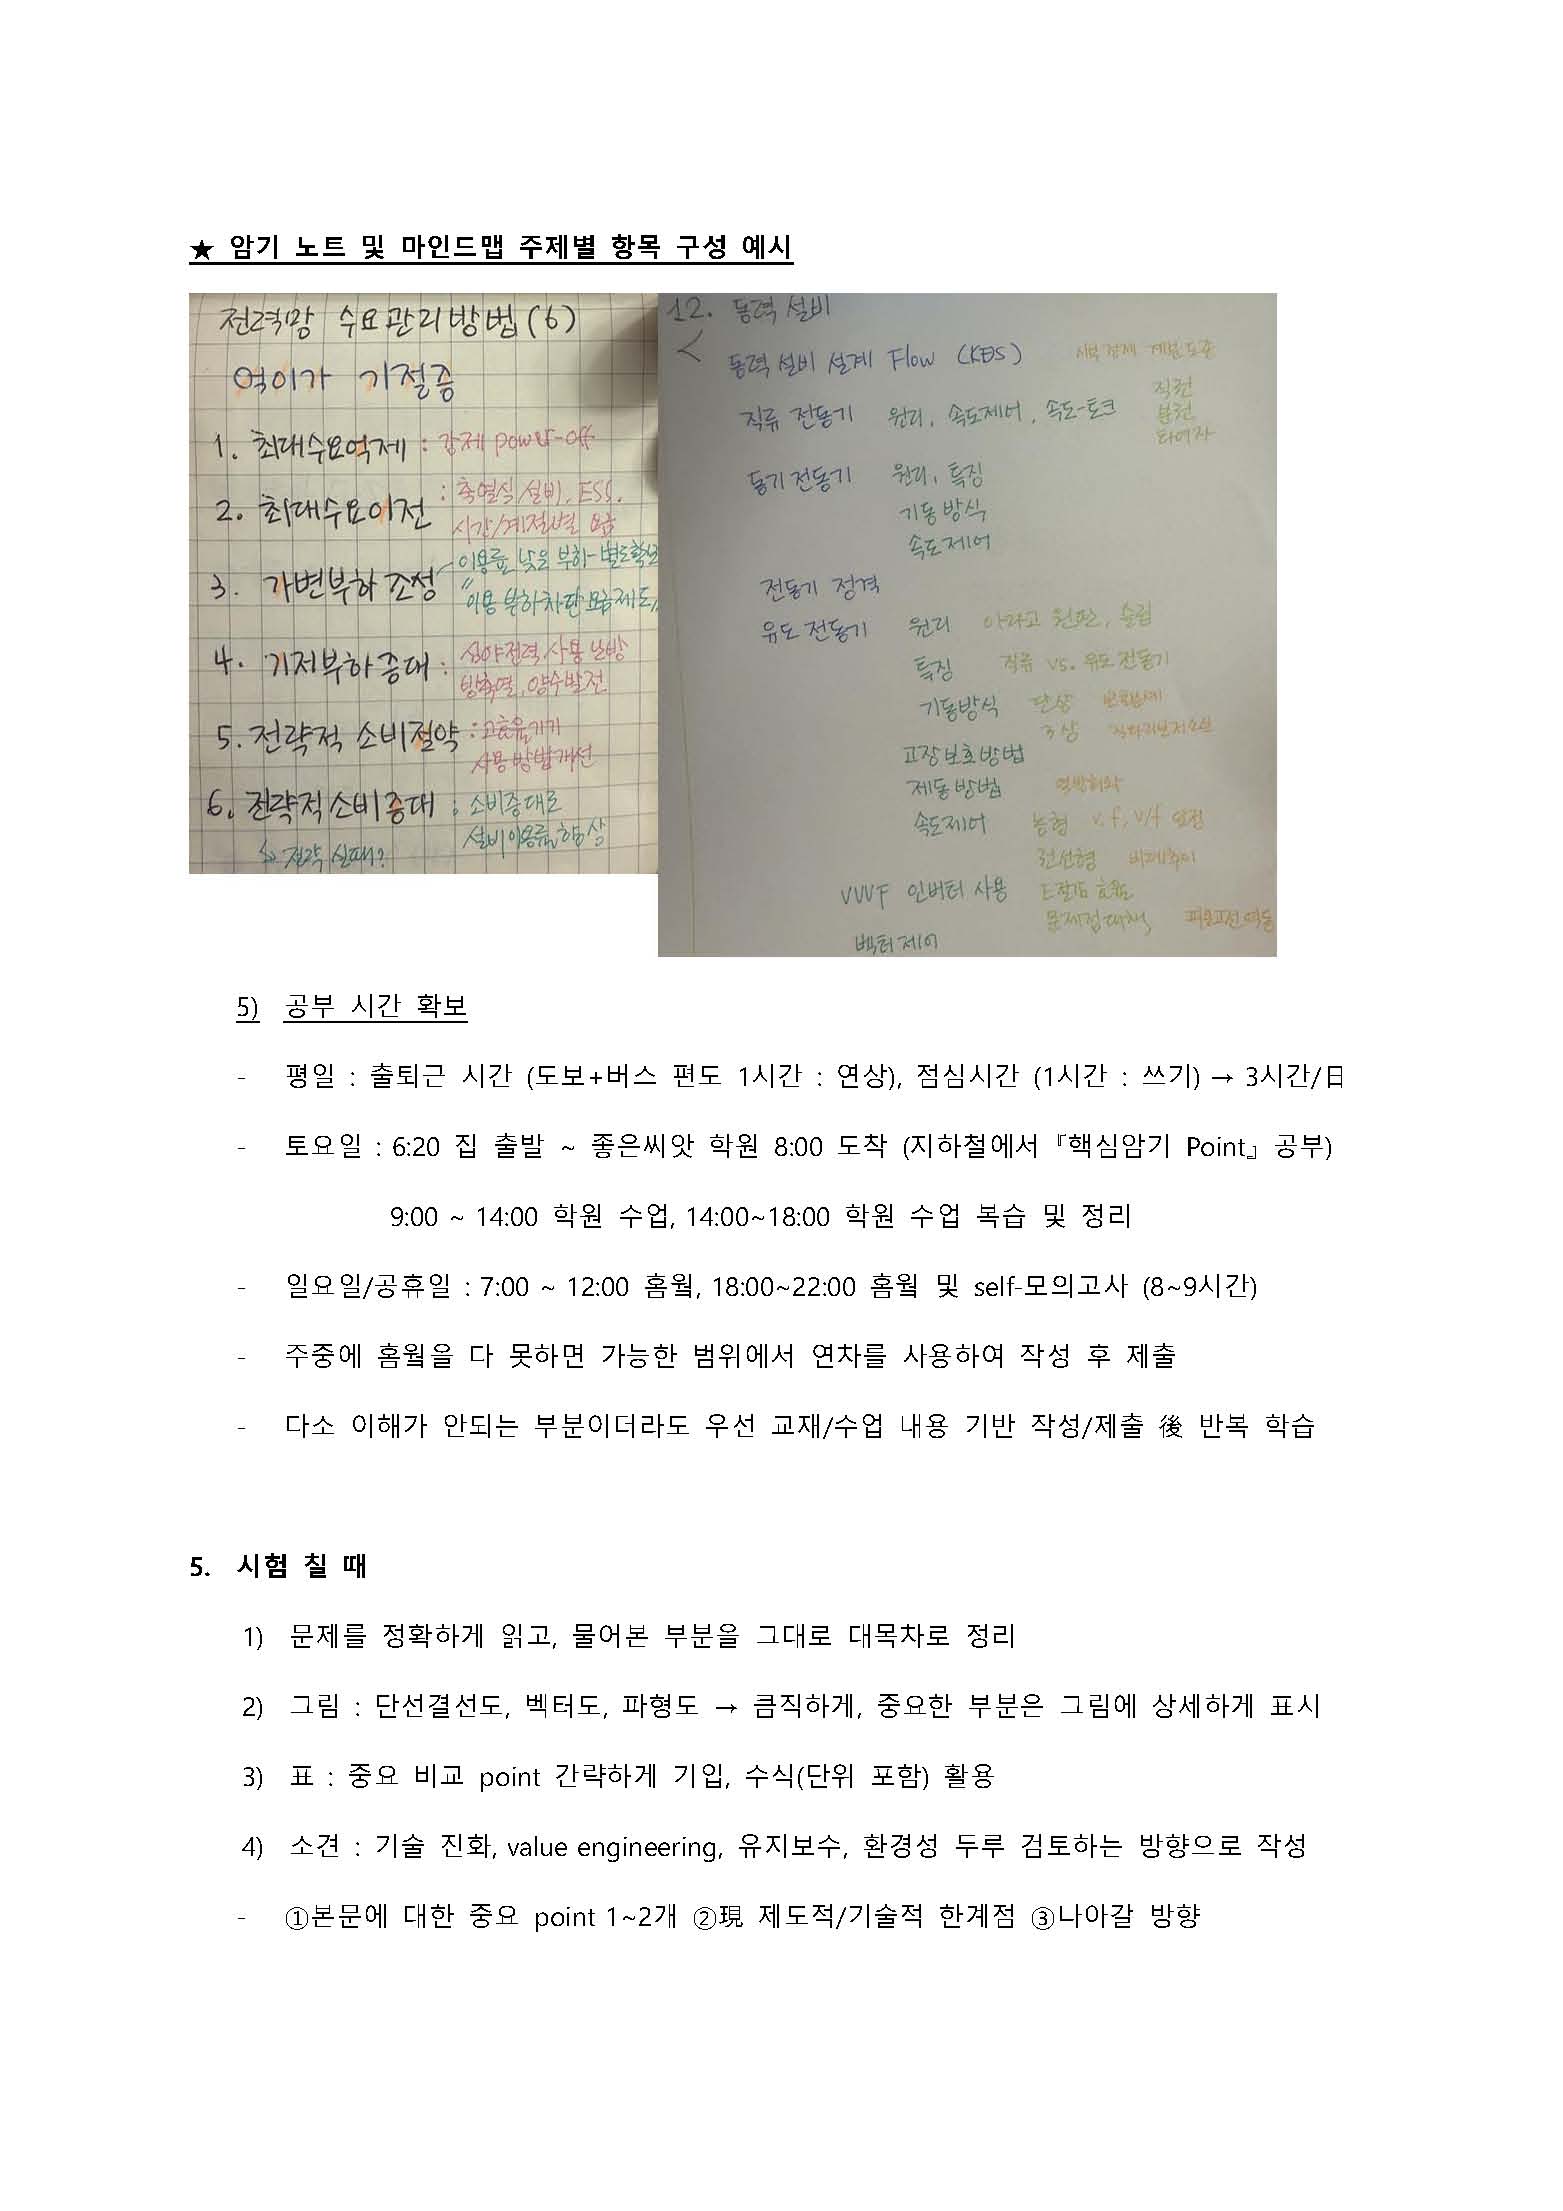 ★ 암기 노트 및 마인드맵 주제별 항목 구성 예시
전력망 수요관리방법(6)
억이가 기절증
1. 최대수요억제 : 강제 power-off
2. 최대수요이전 : 축열식 설비, ESS,
시간/계절별 요금
3. 가변부하 조성 이용률 낮은 부하-별도확보
〃 이용 부하차단 요금제도
4. 기저부하증대 : 심야전력, 사용 난방
빙축열, 양수발전
5. 전략적 소비절약 : 고효율기기
사용방법개선
6. 전략적소비증대 : 소비증대로
설비이용률 향상
↳ 전략 실패?
12. 동력 설비
<
동력 설비 설계 Flow (KDS)
직류 전동기 원리, 속도제어, 속도-토크 직권
분권
타여자
동기 전동기 원리, 특징
기동 방식
속도제어
전동기 정격
유도 전동기 원리 아라고 원판, 슬립
특징 직류 vs. 유도 전동기
기동방식 단상
3상
고장보호방법
제동 방법
속도제어 농형 V, f, V/f 일정
권선형
VVVF 인버터 사용
문제점대책
벡터 제어
5) 공부 시간 확보
- 평일 : 출퇴근 시간 (도보+버스 편도 1시간 : 연상), 점심시간 (1시간 : 쓰기) → 3시간/日
- 토요일 : 6:20 집 출발 ~ 좋은씨앗 학원 8:00 도착 (지하철에서 『핵심암기 Point』 공부)
9:00 ~ 14:00 학원 수업, 14:00~18:00 학원 수업 복습 및 정리
- 일요일/공휴일 : 7:00 ~ 12:00 홈웤, 18:00~22:00 홈웤 및 self-모의고사 (8~9시간)
- 주중에 홈웤을 다 못하면 가능한 범위에서 연차를 사용하여 작성 후 제출
- 다소 이해가 안되는 부분이더라도 우선 교재/수업 내용 기반 작성/제출 後 반복 학습
5. 시험 칠 때
1) 문제를 정확하게 읽고, 물어본 부분을 그대로 대목차로 정리
2) 그림 : 단선결선도, 벡터도, 파형도 → 큼직하게, 중요한 부분은 그림에 상세하게 표시
3) 표 : 중요 비교 point 간략하게 기입, 수식(단위 포함) 활용
4) 소견 : 기술 진화, value engineering, 유지보수, 환경성 두루 검토하는 방향으로 작성
- ①본문에 대한 중요 point 1~2개 ②現 제도적/기술적 한계점 ③나아갈 방향